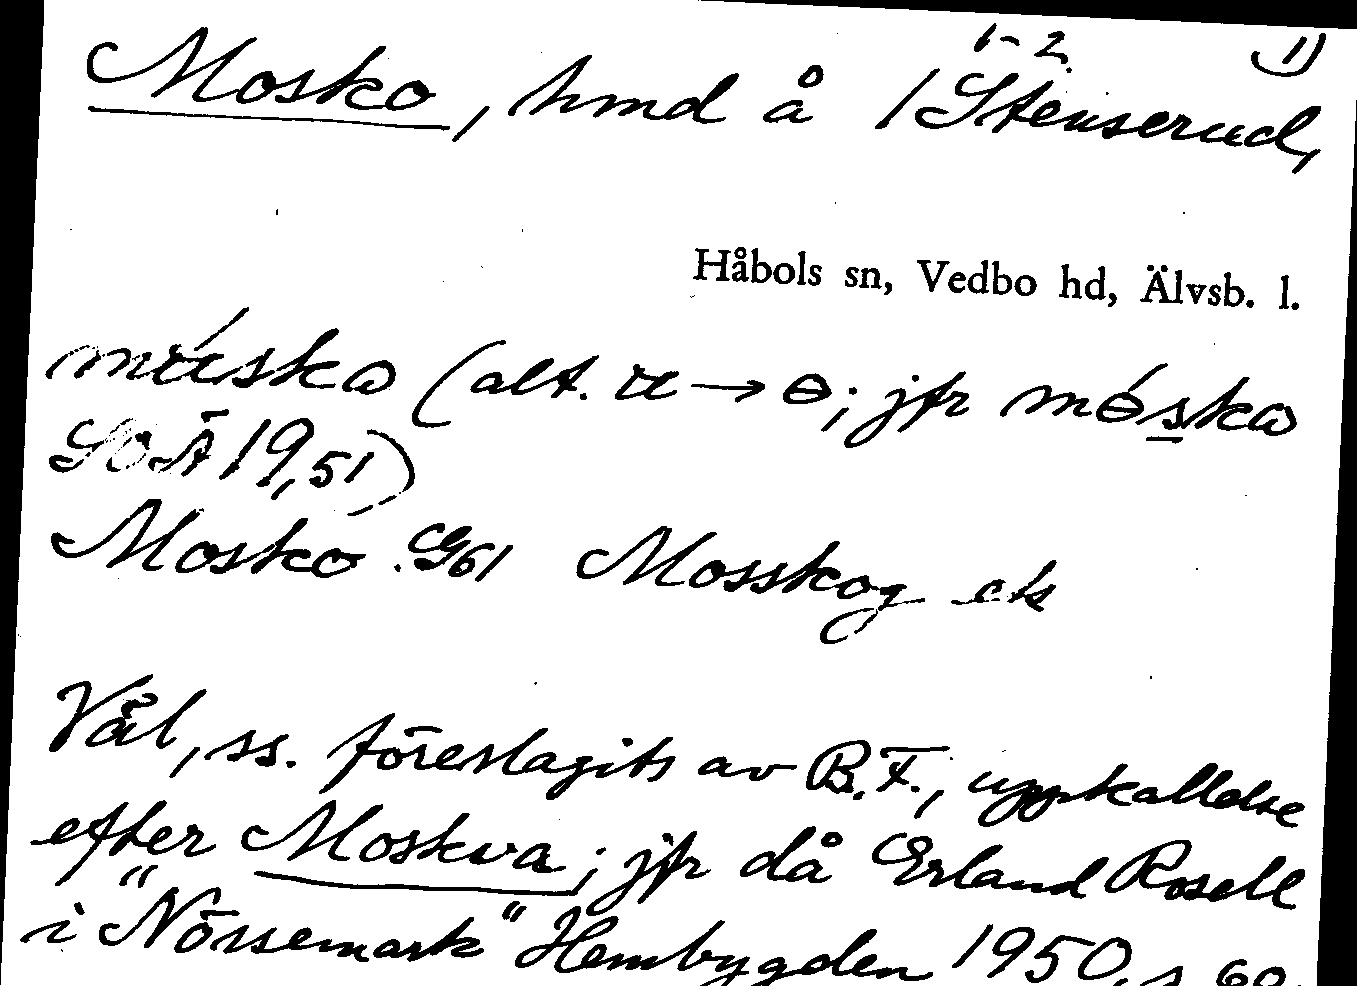 Mosko, hmd å 1/1-2 Stenserud, 1)
Håbols sn, Vedbo hd, Älvsb. l.
(alt. → ɵ; jfr
SOÄ 19,51)
Moskö G61 Mosskog ek
Väl, ss. föreslagits av B.F., uppkallelse
efter Moskva; jfr då Erland Rosell
i "Nössemark" Hembygden 1950, s 60.